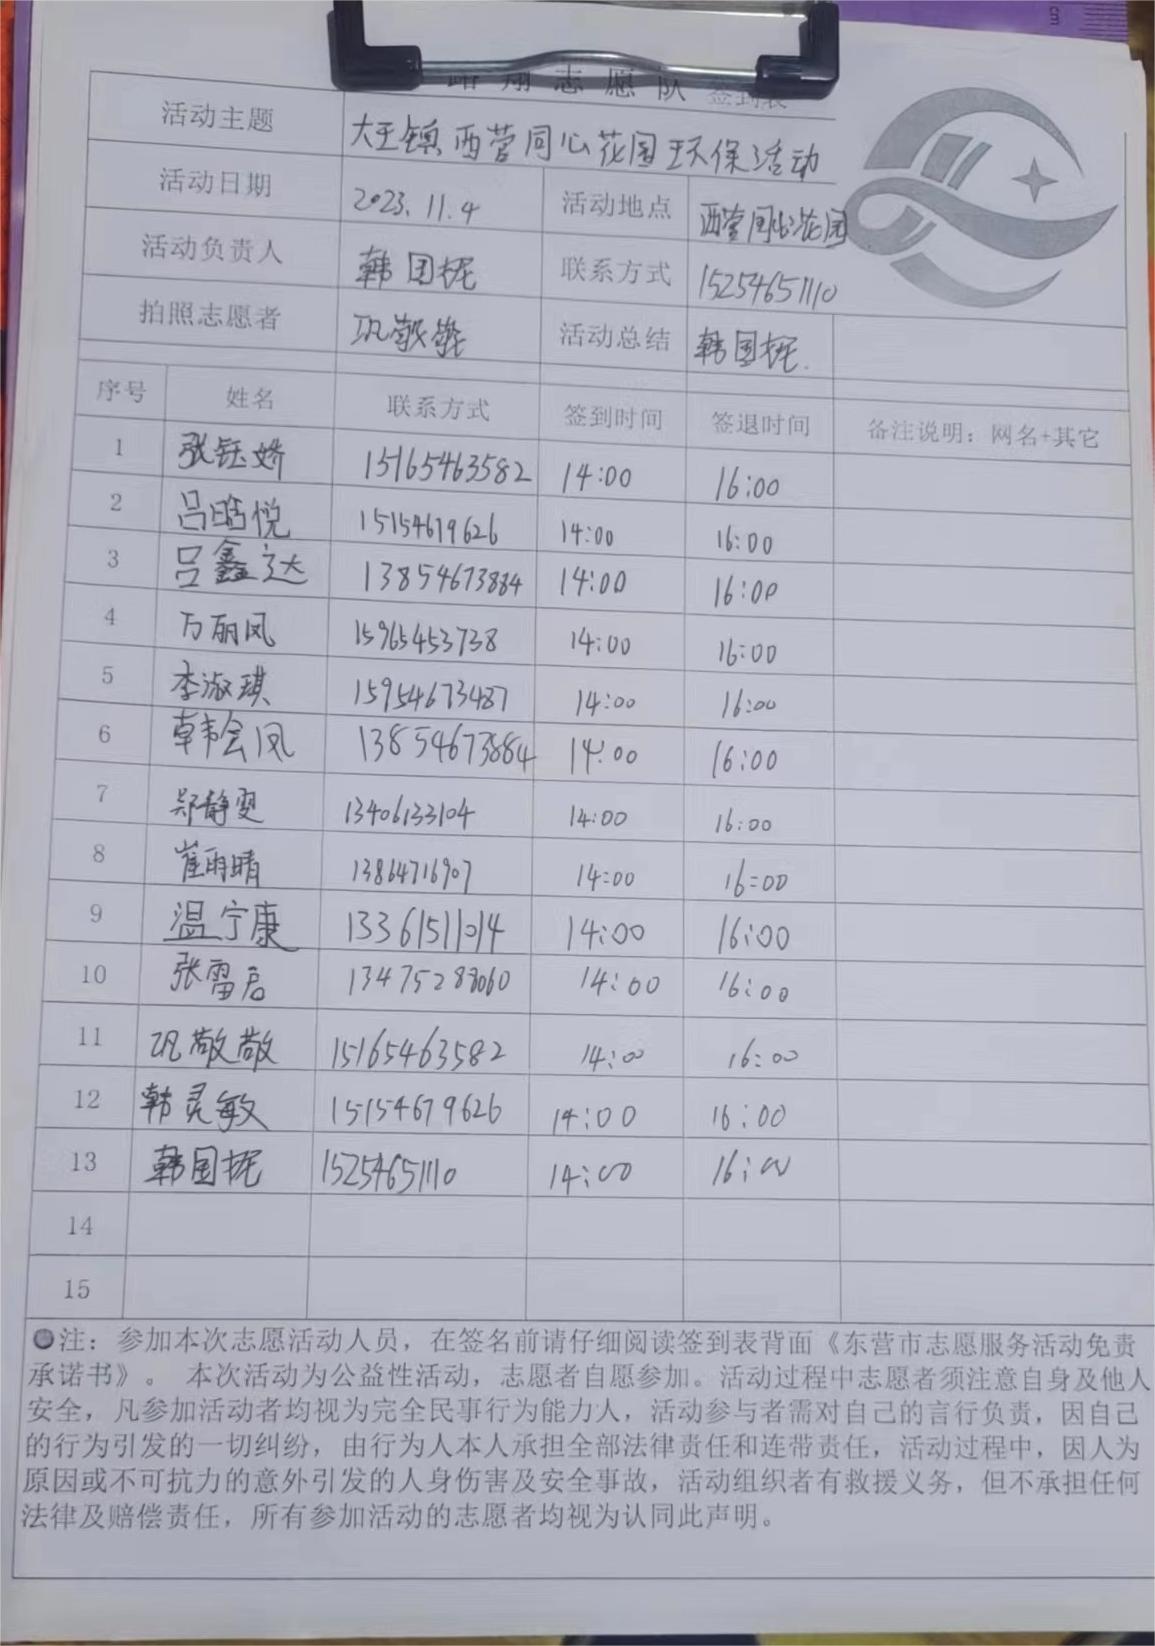 翔志愿队 签到表
活动主题 大王镇西营同心花园环保活动
活动日期 2023.11.4 活动地点 西营同心花园
活动负责人 韩国振 联系方式 15254651110
拍照志愿者 巩敬敬 活动总结 韩国振.
序号 姓名 联系方式 签到时间 签退时间 备注说明：网名+其它
1 张钰娇 15165463582 14:00 16:00
2 吕晧悦 15154679626 14:00 16:00
3 吕鑫达 13854673884 14:00 16:00
4 万丽凤 15965453738 14:00 16:00
5 李淑琪 15954673487 14:00 16:00
6 韩会凤 13854673884 14:00 16:00
7 郑静雯 13406133104 14:00 16:00
8 崔雨晴 13864716907 14:00 16:00
9 温宁康 13361511014 14:00 16:00
10 张雷启 13475288060 14:00 16:00
11 巩敬敬 15165463582 14:00 16:00
12 韩灵敏 15154679626 14:00 16:00
13 韩国振 15254651110 14:00 16:00
14
15
注：参加本次志愿活动人员，在签名前请仔细阅读签到表背面《东营市志愿服务活动免责
承诺书》。 本次活动为公益性活动，志愿者自愿参加。活动过程中志愿者须注意自身及他人
安全，凡参加活动者均视为完全民事行为能力人，活动参与者需对自己的言行负责，因自己
的行为引发的一切纠纷，由行为人本人承担全部法律责任和连带责任，活动过程中，因人为
原因或不可抗力的意外引发的人身伤害及安全事故，活动组织者有救援义务，但不承担任何
法律及赔偿责任，所有参加活动的志愿者均视为认同此声明。